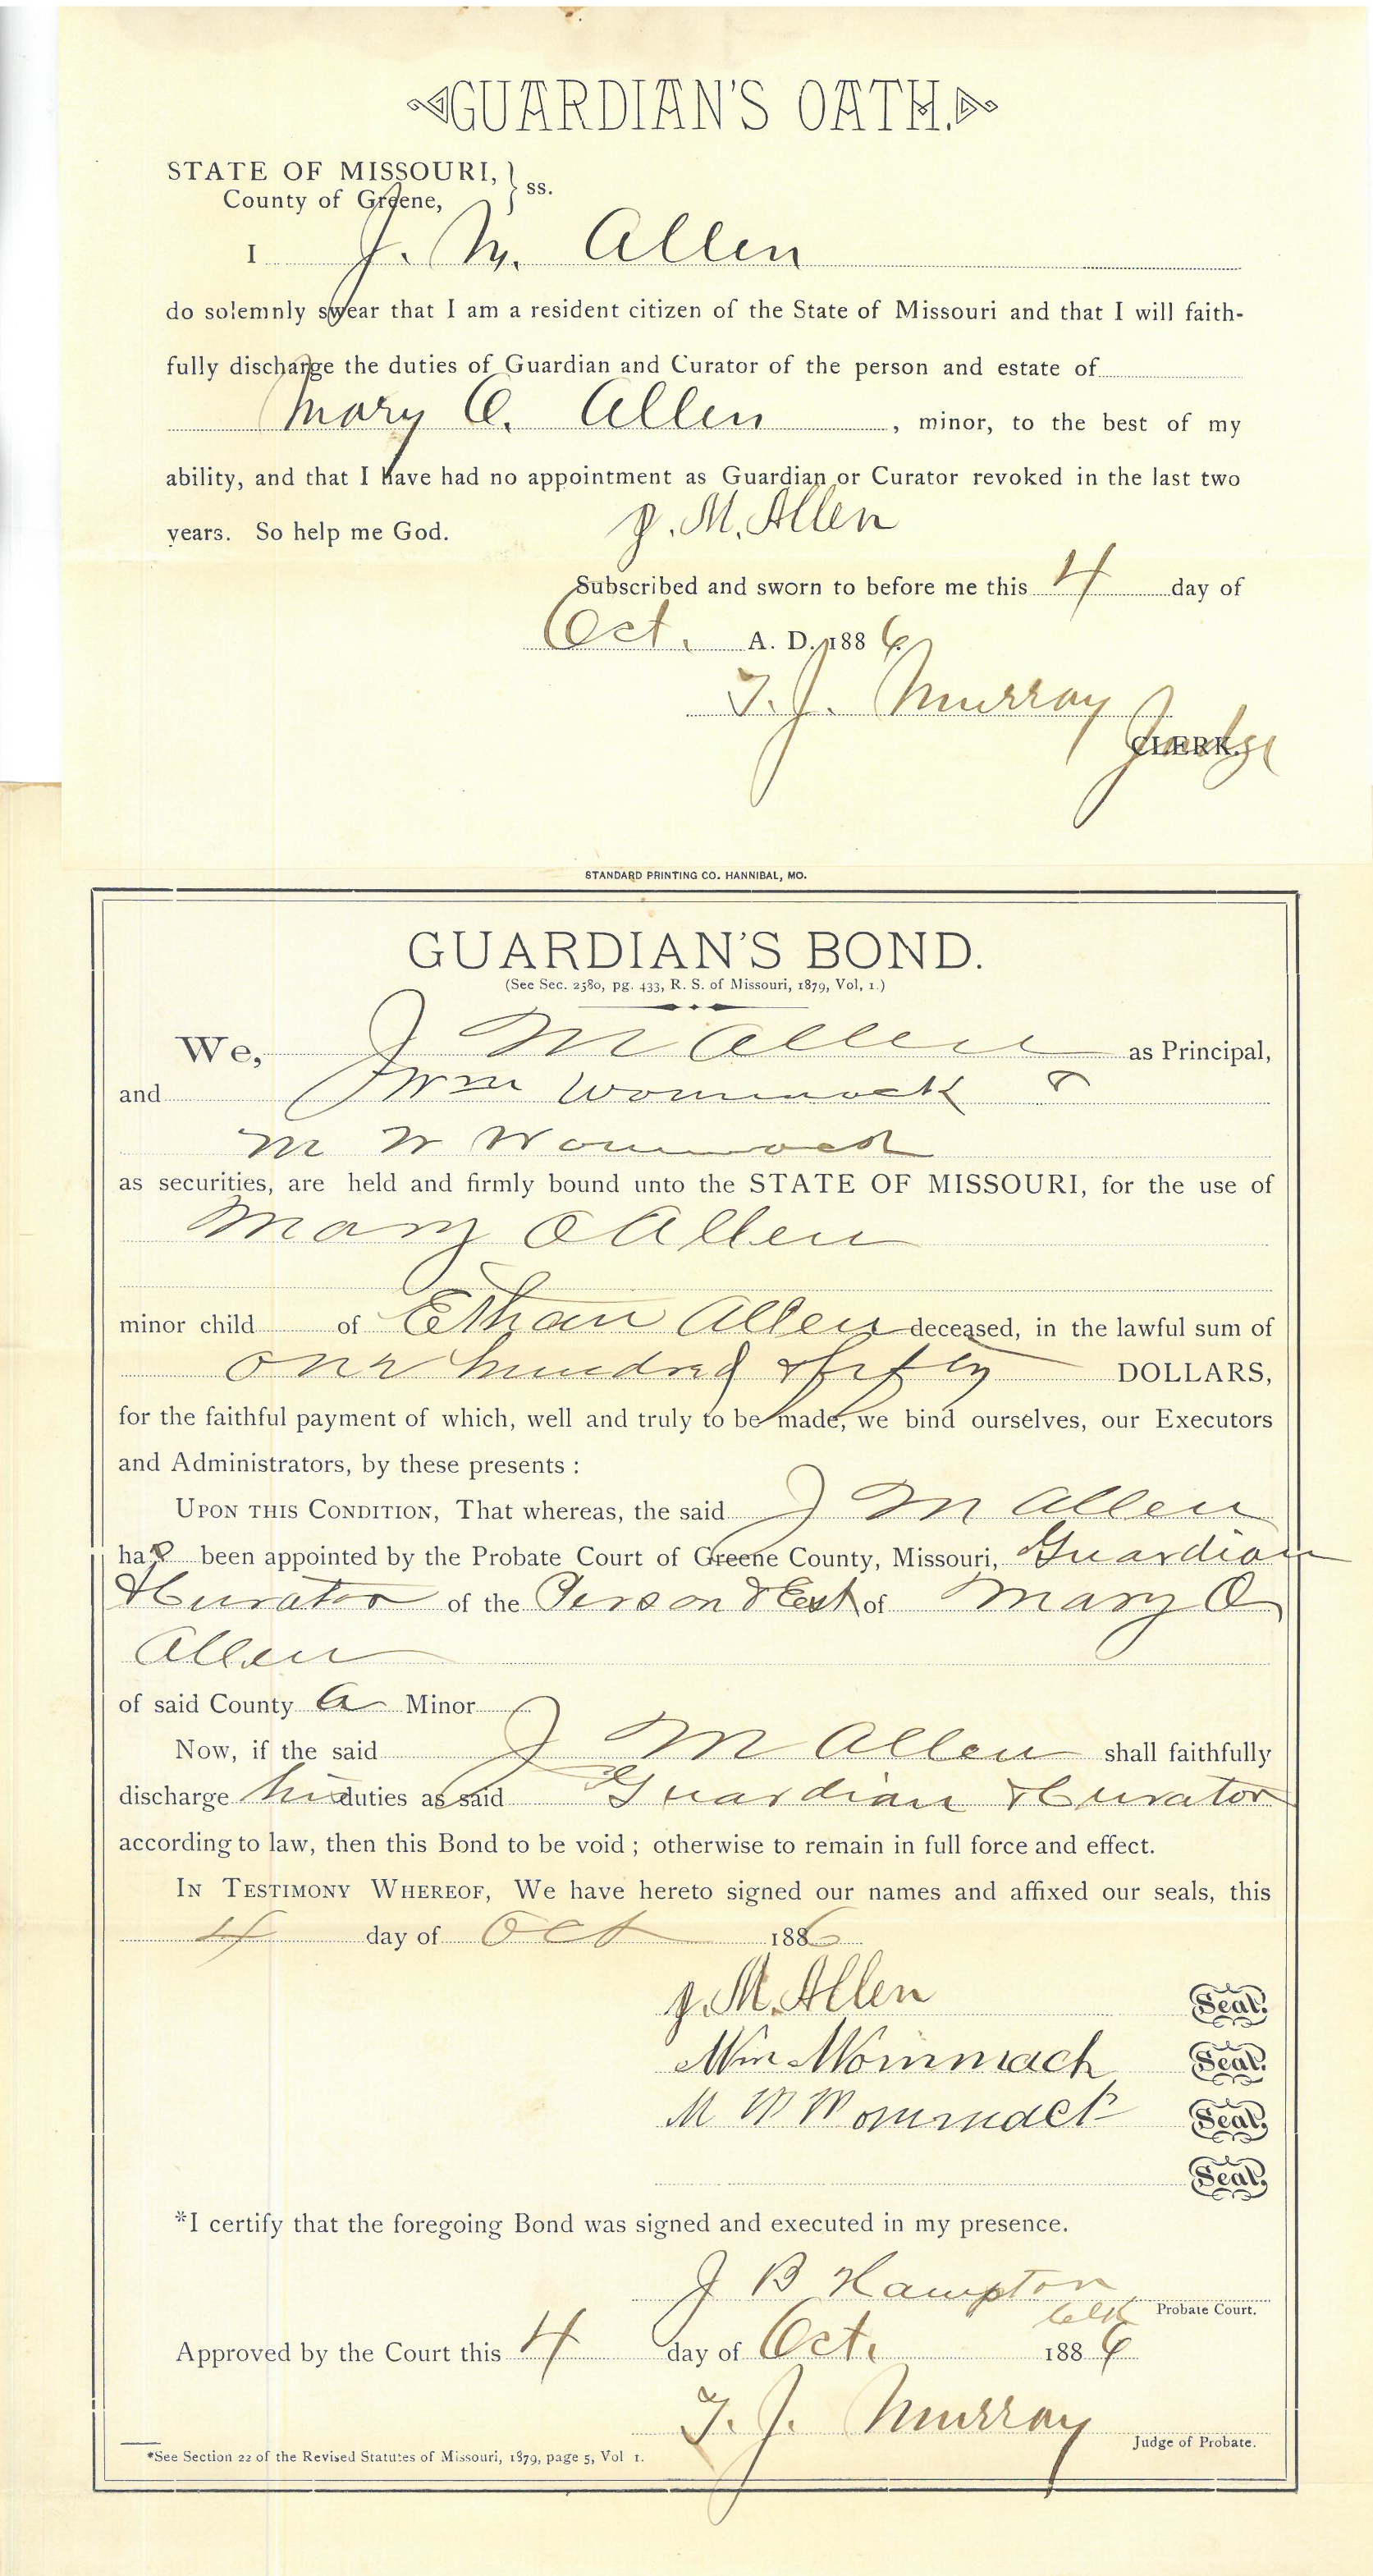 GUARDIAN'S OATH.
STATE OF MISSOURI, } ss.
County of Greene,
I J. M. Allen
do solemnly swear that I am a resident citizen of the State of Missouri and that I will faith-
fully discharge the duties of Guardian and Curator of the person and estate of
Mary O. Allen, minor, to the best of my
ability, and that I have had no appointment as Guardian or Curator revoked in the last two
years. So help me God. J. M. Allen
Subscribed and sworn to before me this 4 day of
Oct. A. D. 1886.
T. J. Murray
CLERK. Judge
STANDARD PRINTING CO. HANNIBAL, MO.
GUARDIAN'S BOND.
(See Sec. 2580, pg. 433, R. S. of Missouri, 1879, Vol, 1.)
We, J M Allen as Principal,
and Wm Wommack &
M W Wommack
as securities, are held and firmly bound unto the STATE OF MISSOURI, for the use of
Mary O Allen
minor child of Ethan Allen deceased, in the lawful sum of
One hundred & fifty DOLLARS,
for the faithful payment of which, well and truly to be made, we bind ourselves, our Executors
and Administrators, by these presents :
UPON THIS CONDITION, That whereas, the said J M Allen
has been appointed by the Probate Court of Greene County, Missouri, Guardian
& Curator of the Person & Est of Mary O
Allen
of said County a Minor
Now, if the said J M Allen shall faithfully
discharge his duties as said Guardian & Curator
according to law, then this Bond to be void ; otherwise to remain in full force and effect.
IN TESTIMONY WHEREOF, We have hereto signed our names and affixed our seals, this
4 day of Oct 1886
J. M. Allen Seal.
Wm Wommack Seal.
M W Wommack Seal.
Seal.
*I certify that the foregoing Bond was signed and executed in my presence.
J B Hampton
Clk Probate Court.
Approved by the Court this 4 day of Oct. 1886
T. J. Murray
Judge of Probate.
*See Section 22 of the Revised Statutes of Missouri, 1879, page 5, Vol 1.